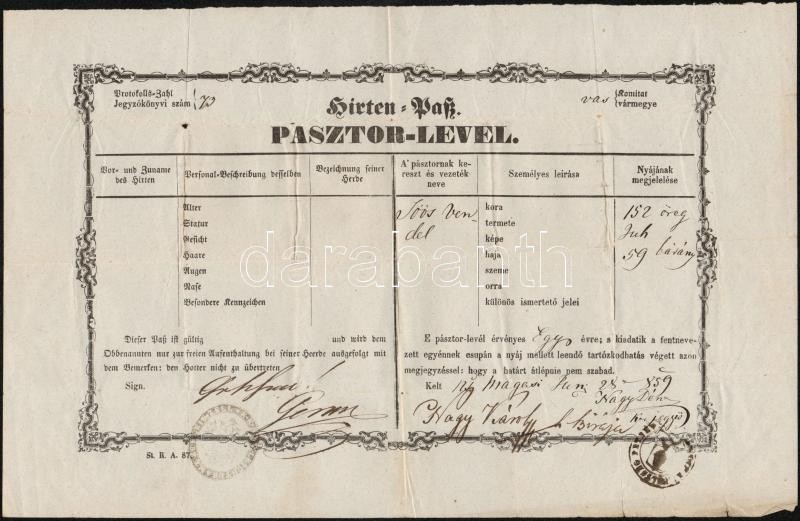 Protokolls-Zahl
Jegyzőkönyvi szám } 73
vas { Komitat
vármegye
Hirten-Paß.
PASZTOR-LEVEL.
Vor- und Zuname
des Hirten
Personal-Beschreibung desselben
Bezeichnung seiner
Herde
A' pásztornak ke-
reszt és vezeték
neve
Személyes leirása
Nyájának
megjelelése
Alter
Statur
Gesicht
Haare
Augen
Nase
Besondere Kennzeichen
Soós Ven-
del
kora
termete
képe
haja
szeme
orra
különös ismertető jelei
152 öreg
Juh
59 bárány
darabanth
Dieser Paß ist gültig und wird dem
Obbenannten nur zur freien Aufenthaltung bei seiner Heerde ausgefolgt mit
dem Bemerken: den Hotter nicht zu übertreten
Sign.
E pásztor-levél érvényes Egy évre; s kiadatik a fentneve-
zett egyénnek esupán a nyáj mellett leendő tartózkodhatás végett azon
megjegyzéssel: hogy a határt átlépnie nem szabad.
Kelt Magasi 28 859
Nagy
Nagy Károly Birája
St. R. A. 87.